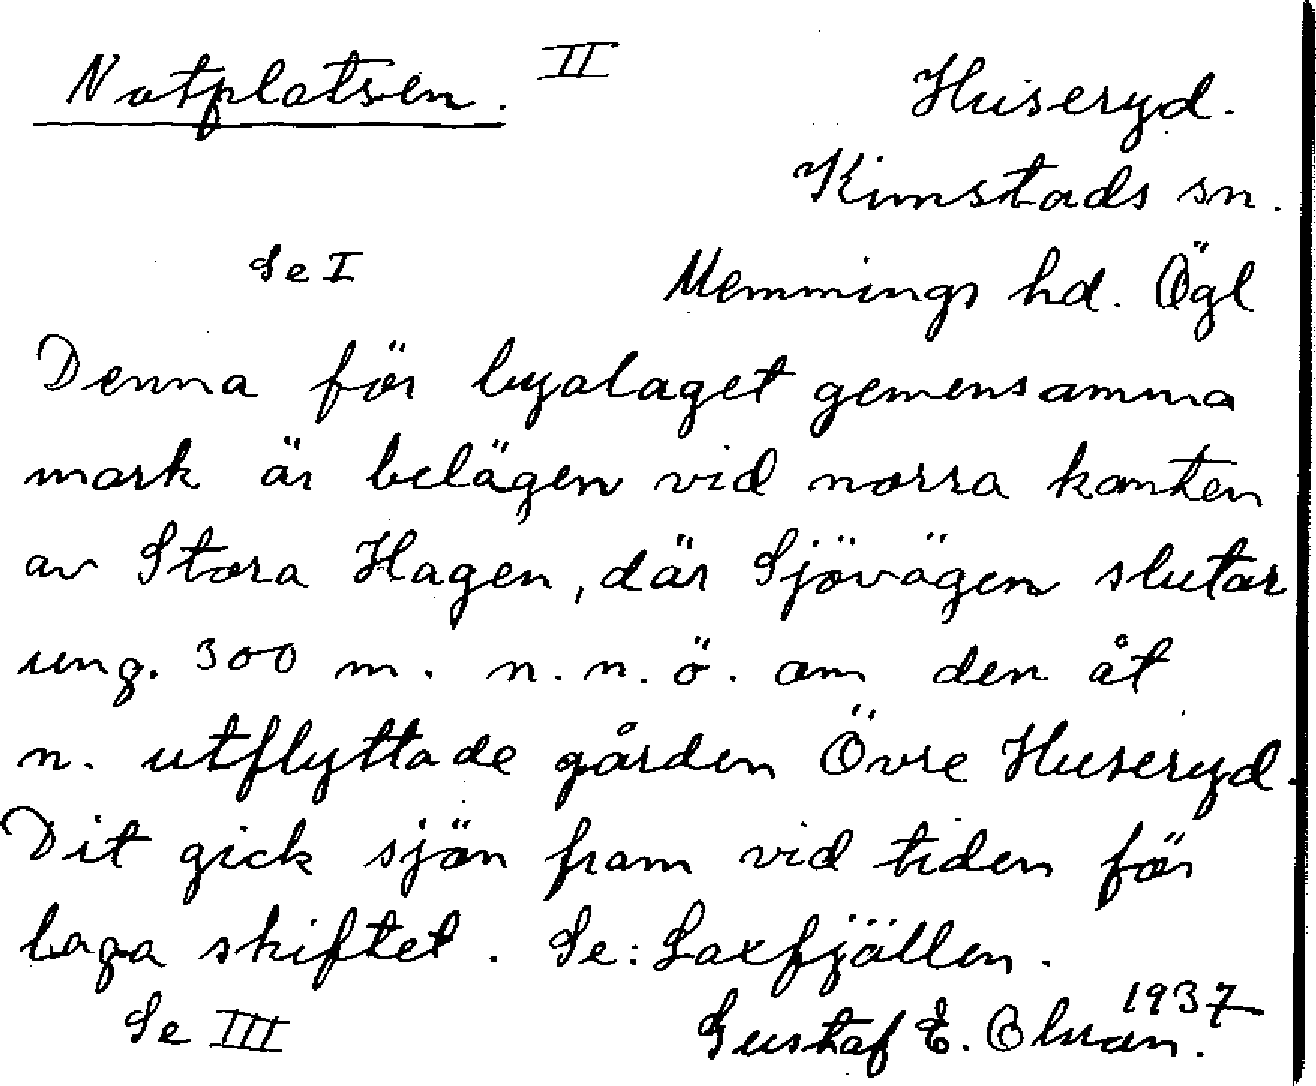 Notplatsen. II
Huseryd.
Kimstads sn.
Se I
Memmings hd. Ögl
Denna för byalaget gemensamma
mark är belägen vid norra kanten
av Stora Hagen, där Sjövägen slutar
ung. 300 m. n.n.ö. om den åt
n. utflyttade gården Övre Huseryd.
Dit gick sjön fram vid tiden för
laga skiftet. Se: Laxfjällen.
1937
Se III
Gustaf E.